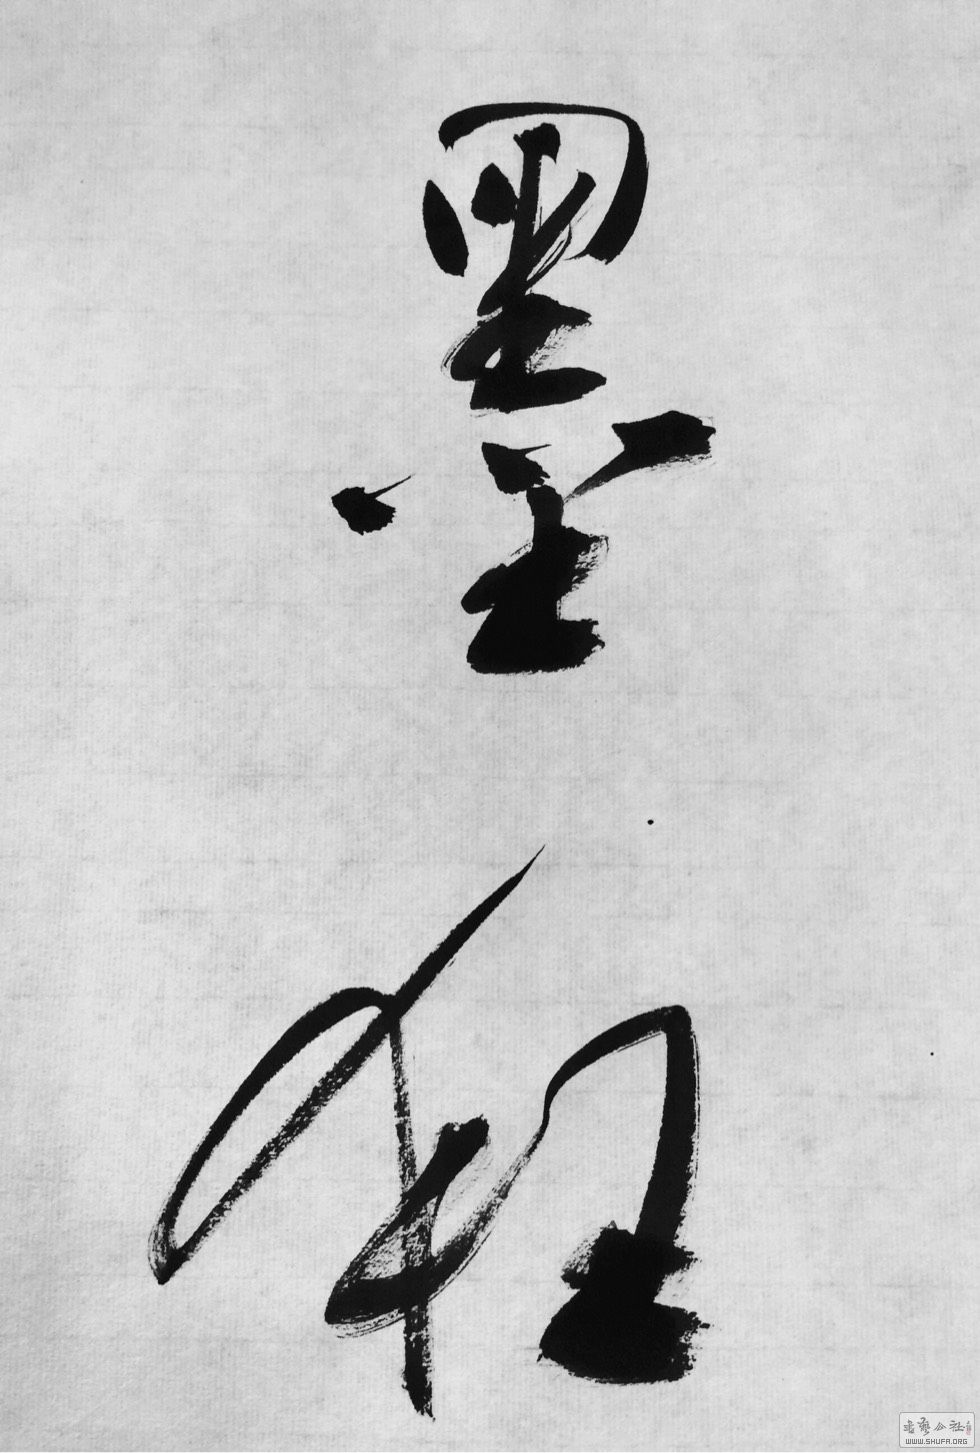 墨
狂
書藝公社
WWW.SHUFA.ORG